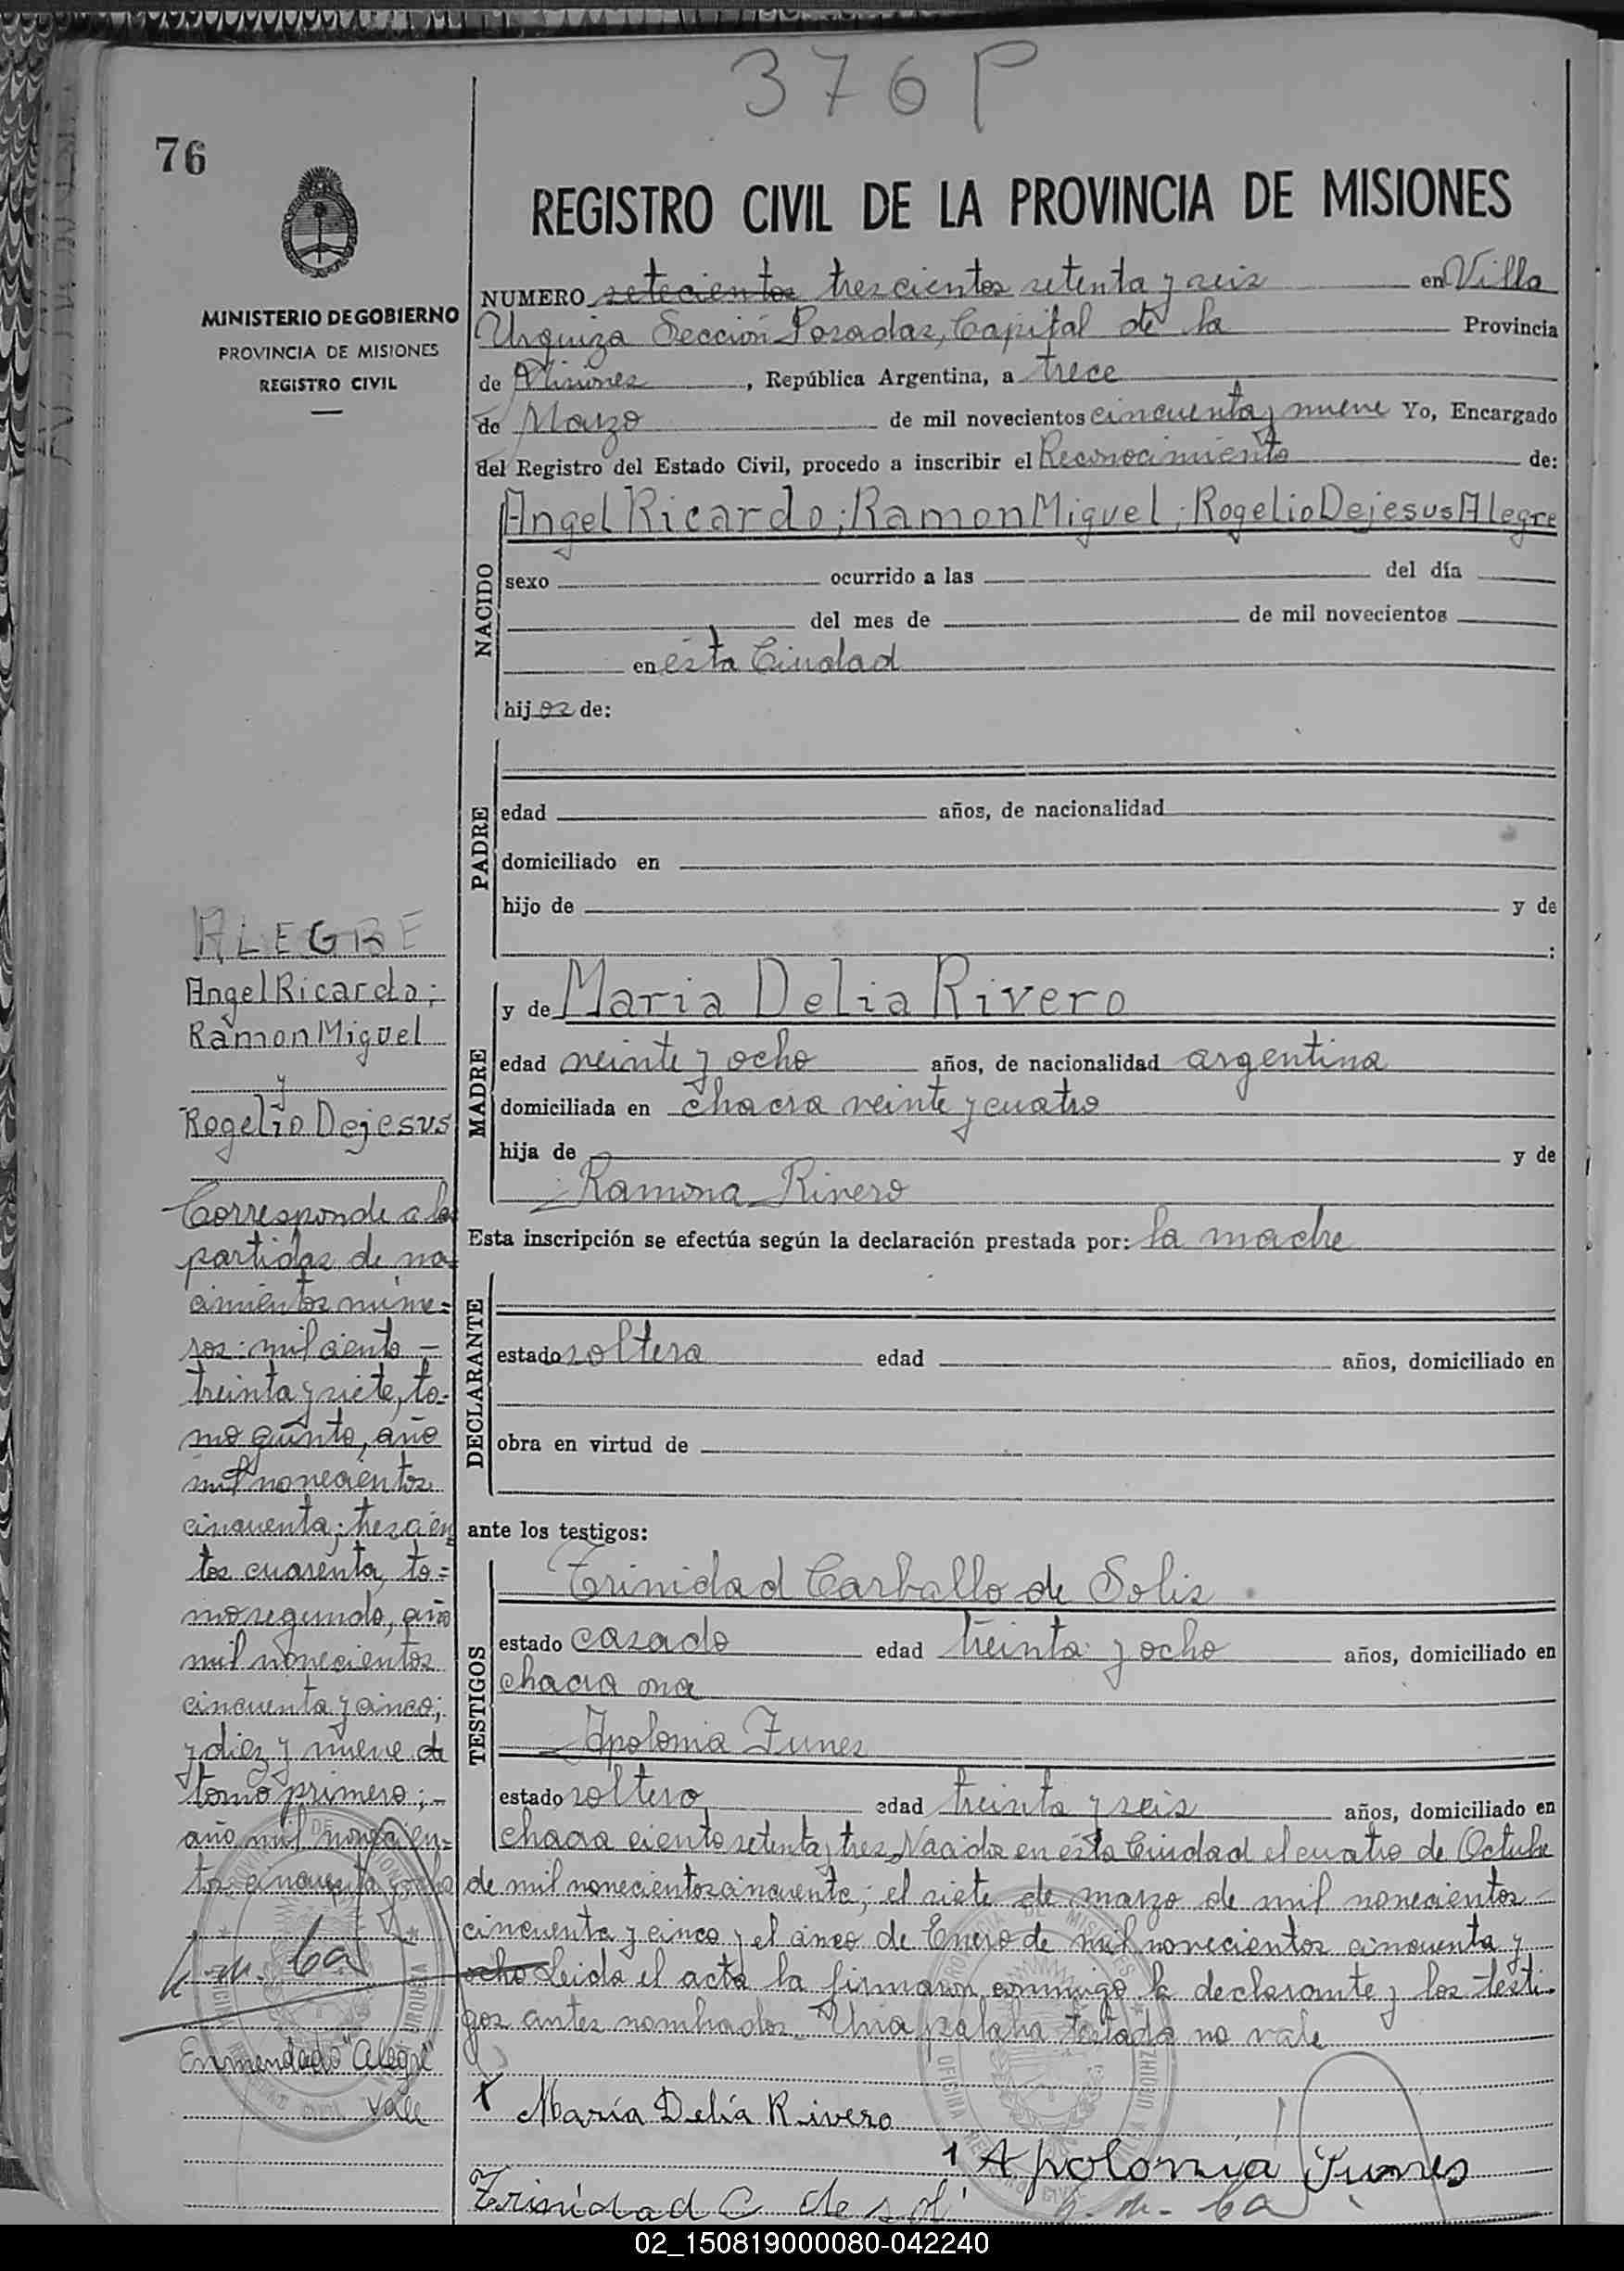 376 P
76
REGISTRO CIVIL DE LA PROVINCIA DE MISIONES
MINISTERIO DE GOBIERNO
PROVINCIA DE MISIONES
REGISTRO CIVIL
NUMERO setecientos trescientos setenta y seis en Villa
Urquiza Sección Posadas, Capital de la Provincia
de Misiones, República Argentina, a trece
de Marzo de mil novecientos cincuenta y nueve Yo, Encargado
del Registro del Estado Civil, procedo a inscribir el Reconocimiento de:
NACIDO
Angel Ricardo; Ramon Miguel; Rogelio Dejesus Alegre
sexo ocurrido a las del día
del mes de de mil novecientos
en ésta Ciudad
hijos de:
PADRE
edad años, de nacionalidad
domiciliado en
hijo de y de
:
MADRE
y de Maria Delia Rivero
edad veinte y ocho años, de nacionalidad argentina
domiciliada en chacra veinte y cuatro
hija de y de
Ramona Rivero
Esta inscripción se efectúa según la declaración prestada por: la madre
DECLARANTE
estado soltera edad años, domiciliado en
obra en virtud de
ante los testigos:
TESTIGOS
Trinidad Carballo de Solis
estado casado edad treinta y ocho años, domiciliado en
chacra
Apolonia Funes
estado soltero edad treinta y seis años, domiciliado en
chacra ciento setenta y tres Nacidos en ésta Ciudad el cuatro de Octubre
de mil novecientos cincuenta; el siete de marzo de mil novecientos
cincuenta y cinco y el cinco de Enero de mil novecientos cincuenta y
ocho Leida el acta la firmaron conmigo la declarante y los testi-
gos antes nombrados. Una palabra testada no vale
María Delia Rivero
Apolonia Funes
Trinidad C de sol
ALEGRE
Angel Ricardo;
Ramon Miguel
y
Rogelio Dejesus
Corresponde a las
partidas de na-
cimientos núme=
ros: mil ciento -
treinta y siete, to-
mo quinto, año
mil novecientos
cincuenta; trescien
tos cuarenta, to=
mo segundo, año
mil novecientos
cincuenta y cinco;
y diez y nueve de
tomo primero; -
año mil novecien=
tos cincuenta y ocho
Enmendado "Alegre"
Vale
02_150819000080-042240